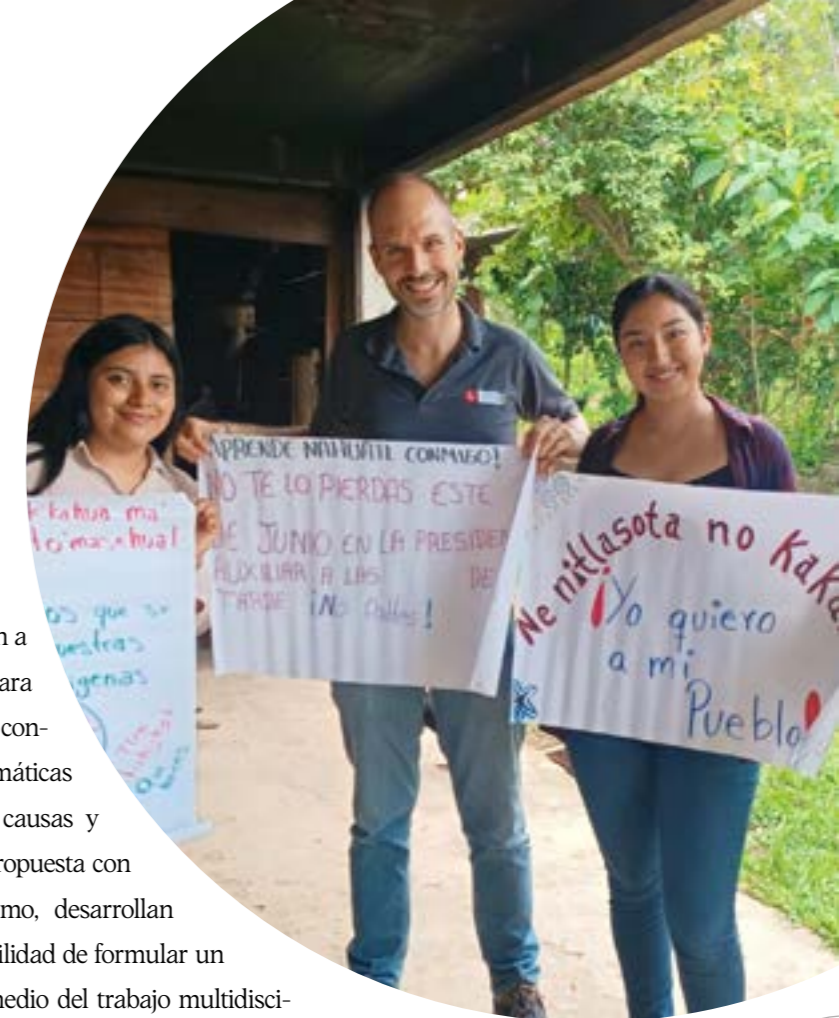 kahua ma
to'masehual
os que se
uestras
ígenas
APRENDE NAHUATL CONMIGO!
NO TE LO PIERDAS ESTE
DE JUNIO EN LA PRESIDEN
AUXILIAR A LAS DE
TARDE ¡No faltes!
Ne nitlasota no Kaka
¡Yo quiero
a mi
Pueblo!
n a
ara
con-
máticas
causas y
ropuesta con
mo, desarrollan
ilidad de formular un
medio del trabajo multidisci-